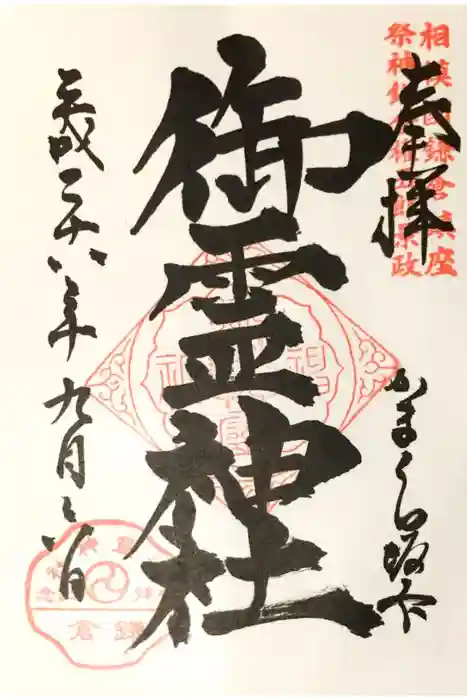 奉拝
相模国鎌倉鎮座
祭神鎌倉権五郎景政
かまくら坂ノ下
御霊神社
平成二十八年九月六日
鎌倉